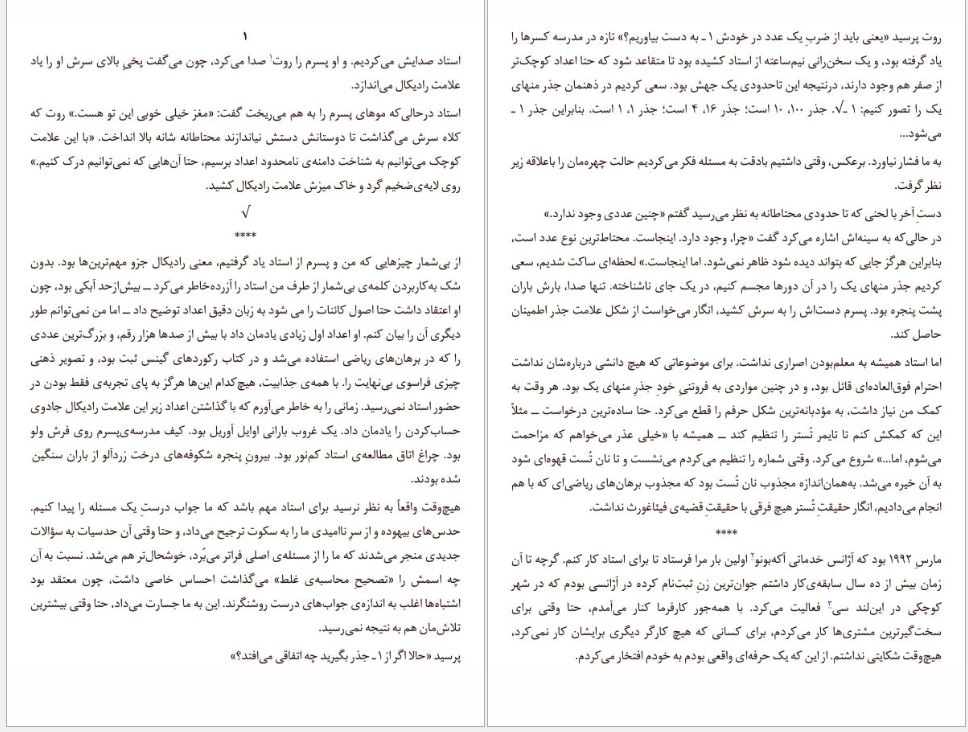 ۱
استاد صدایش می‌کردیم. و او پسرم را روت۱ صدا می‌کرد، چون می‌گفت پخیِ بالای سرش او را یاد
علامت رادیکال می‌اندازد.
استاد درحالی‌که موهای پسرم را به هم می‌ریخت گفت: «مغز خیلی خوبی این تو هست.» روت که
کلاه سرش می‌گذاشت تا دوستانش دستش نیاندازند محتاطانه شانه بالا انداخت. «با این علامت
کوچک می‌توانیم به شناخت دامنه‌ی نامحدود اعداد برسیم، حتا آن‌هایی که نمی‌توانیم درک کنیم.»
روی لایه‌ی‌ضخیم گرد و خاک میزش علامت رادیکال کشید.
√
****
از بی‌شمار چیزهایی که من و پسرم از استاد یاد گرفتیم، معنی رادیکال جزو مهم‌ترین‌ها بود. بدون
شک به‌کاربردن کلمه‌ی بی‌شمار از طرف من استاد را آزرده‌خاطر می‌کرد ــ بیش‌ازحد آبکی بود، چون
او اعتقاد داشت حتا اصول کائنات را می شود به زبان دقیق اعداد توضیح داد ــ اما من نمی‌توانم طور
دیگری آن را بیان کنم. او اعداد اول زیادی یادمان داد با بیش از صدها هزار رقم، و بزرگ‌ترین عددی
را که در برهان‌های ریاضی استفاده می‌شد و در کتاب رکوردهای گینس ثبت بود، و تصویر ذهنی
چیزی فراسوی بی‌نهایت را. با همه‌ی جذابیت، هیچ‌کدام این‌ها هرگز به پای تجربه‌ی فقط بودن در
حضور استاد نمی‌رسید. زمانی را به خاطر می‌آورم که با گذاشتن اعداد زیر این علامت رادیکال جادوی
حساب‌کردن را یادمان داد. یک غروب بارانی اوایل آوریل بود. کیف مدرسه‌ی‌پسرم روی فرش ولو
بود. چراغ اتاق مطالعه‌ی استاد کم‌نور بود. بیرونِ پنجره شکوفه‌های درخت زردآلو از باران سنگین
شده بودند.
هیچ‌وقت واقعاً به نظر نرسید برای استاد مهم باشد که ما جواب درستِ یک مسئله را پیدا کنیم.
حدس‌های بیهوده و از سرِ ناامیدی ما را به سکوت ترجیح می‌داد، و حتا وقتی آن حدسیات به سؤالات
جدیدی منجر می‌شدند که ما را از مسئله‌ی اصلی فراتر می‌بُرد، خوشحال‌تر هم می‌شد. نسبت به آن
چه اسمش را «تصحیحِ محاسبه‌ی غلط» می‌گذاشت احساس خاصی داشت، چون معتقد بود
اشتباه‌ها اغلب به اندازه‌ی جواب‌های درست روشنگرند. این به ما جسارت می‌داد، حتا وقتی بیشترین
تلاش‌مان هم به نتیجه نمی‌رسید.
پرسید «حالا اگر از ۱ـ جذر بگیرید چه اتفاقی می‌افتد؟»
روت پرسید «یعنی باید از ضربِ یک عدد در خودش ۱ـ به دست بیاوریم؟» تازه در مدرسه کسرها را
یاد گرفته بود، و یک سخن‌رانی نیم‌ساعته از استاد کشیده بود تا متقاعد شود که حتا اعداد کوچک‌تر
از صفر هم وجود دارند، درنتیجه این تاحدودی یک جهش بود. سعی کردیم در ذهنمان جذر منهای
یک را تصور کنیم: ۱ـ√. جذر ۱۰۰، ۱۰ است؛ جذر ۱۶، ۴ است؛ جذر ۱، ۱ است. بنابراین جذر ۱ـ
می‌شود...
به ما فشار نیاورد. برعکس، وقتی داشتیم بادقت به مسئله فکر می‌کردیم حالت چهره‌مان را باعلاقه زیر
نظر گرفت.
دستِ آخر با لحنی که تا حدودی محتاطانه به نظر می‌رسید گفتم «چنین عددی وجود ندارد.»
در حالی‌که به سینه‌اش اشاره می‌کرد گفت «چرا، وجود دارد. اینجاست. محتاط‌ترین نوع عدد است،
بنابراین هرگز جایی که بتواند دیده شود ظاهر نمی‌شود. اما اینجاست.» لحظه‌ای ساکت شدیم، سعی
کردیم جذر منهای یک را در آن دورها مجسم کنیم، در یک جای ناشناخته. تنها صدا، بارش باران
پشت پنجره بود. پسرم دست‌اش را به سرش کشید، انگار می‌خواست از شکل علامت جذر اطمینان
حاصل کند.
اما استاد همیشه به معلم‌بودن اصراری نداشت. برای موضوعاتی که هیچ دانشی درباره‌شان نداشت
احترام فوق‌العاده‌ای قائل بود، و در چنین مواردی به فروتنیِ خودِ جذرِ منهای یک بود. هر وقت به
کمک من نیاز داشت، به مؤدبانه‌ترین شکل حرفم را قطع می‌کرد. حتا ساده‌ترین درخواست ــ مثلاً
این که کمکش کنم تا تایمر تُستر را تنظیم کند ــ همیشه با «خیلی عذر می‌خواهم که مزاحمت
می‌شوم، اما...» شروع می‌کرد. وقتی شماره را تنظیم می‌کردم می‌نشست و تا نان تُست قهوه‌ای شود
به آن خیره می‌شد. به‌همان‌اندازه مجذوب نان تُست بود که مجذوب برهان‌های ریاضی‌ای که با هم
انجام می‌دادیم، انگار حقیقتِ تُستر هیچ فرقی با حقیقتِ قضیه‌ی فیثاغورث نداشت.
****
مارس ۱۹۹۲ بود که آژانس خدماتی آکه‌بونو۲ اولین بار مرا فرستاد تا برای استاد کار کنم. گرچه تا آن
زمان بیش از ده سال سابقه‌ی‌کار داشتم جوان‌ترین زنِ ثبت‌نام کرده در آژانسی بودم که در شهر
کوچکی در این‌لند سی۳ فعالیت می‌کرد. با همه‌جور کارفرما کنار می‌آمدم، حتا وقتی برای
سخت‌گیرترین مشتری‌ها کار می‌کردم، برای کسانی که هیچ کارگر دیگری برایشان کار نمی‌کرد،
هیچ‌وقت شکایتی نداشتم. از این که یک حرفه‌ای واقعی بودم به خودم افتخار می‌کردم.